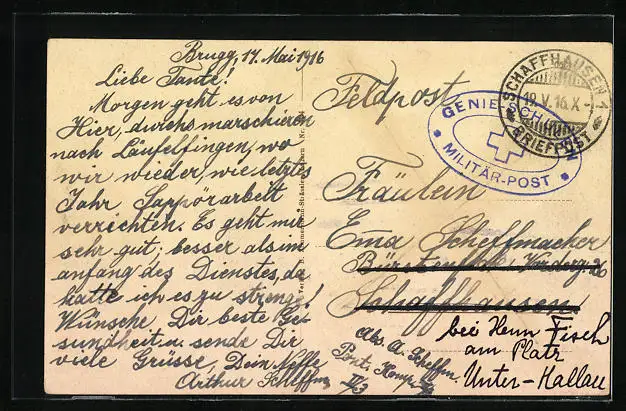 Brugg, 17. Mai 1916
Liebe Tante!
Morgen geht es von
Hier, durchs marschieren
nach Läufelfingen, wo
wir wieder, wie letztes
Jahr Sappörarbeit
verrichten. Es geht mir
sehr gut; besser als im
anfang des Dienstes, da
hatte ich es zu strenge!
Wünsche Dir beste Ge-
sundheit u. sende Dir
viele Grüsse, Dein Neffe
Arthur
Feldpost
GENIE
MILITÄR-POST
SCHAFFHAUSEN 1
19.V.16.X-
BRIEFPOST
Fräulein
Ema Scheffmacher
Schaffhausen
bei Herrn Fisch
am Platz
Unter-Hallau
Abs. A. Scheffm.
Pont. Komp.
II/3